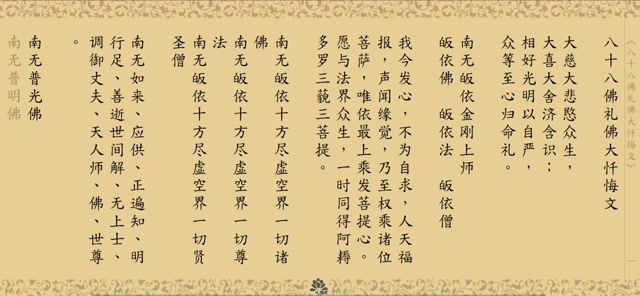 《八十八佛礼佛大忏悔文》
一
八十八佛礼佛大忏悔文
大慈大悲愍众生，
大喜大舍济含识；
相好光明以自严，
众等至心归命礼。
南无皈依金刚上师
皈依佛 皈依法 皈依僧
我今发心，不为自求，人天福
报，声闻缘觉，乃至权乘诸位
菩萨，唯依最上乘发菩提心。
愿与法界众生，一时同得阿耨
多罗三藐三菩提。
南无皈依十方尽虚空界一切诸
佛
南无皈依十方尽虚空界一切尊
法
南无皈依十方尽虚空界一切贤
圣僧
南无如来、应供、正遍知、明
行足、善逝世间解、无上士、
调御丈夫、天人师、佛、世尊
。
南无普光佛
南无普明佛